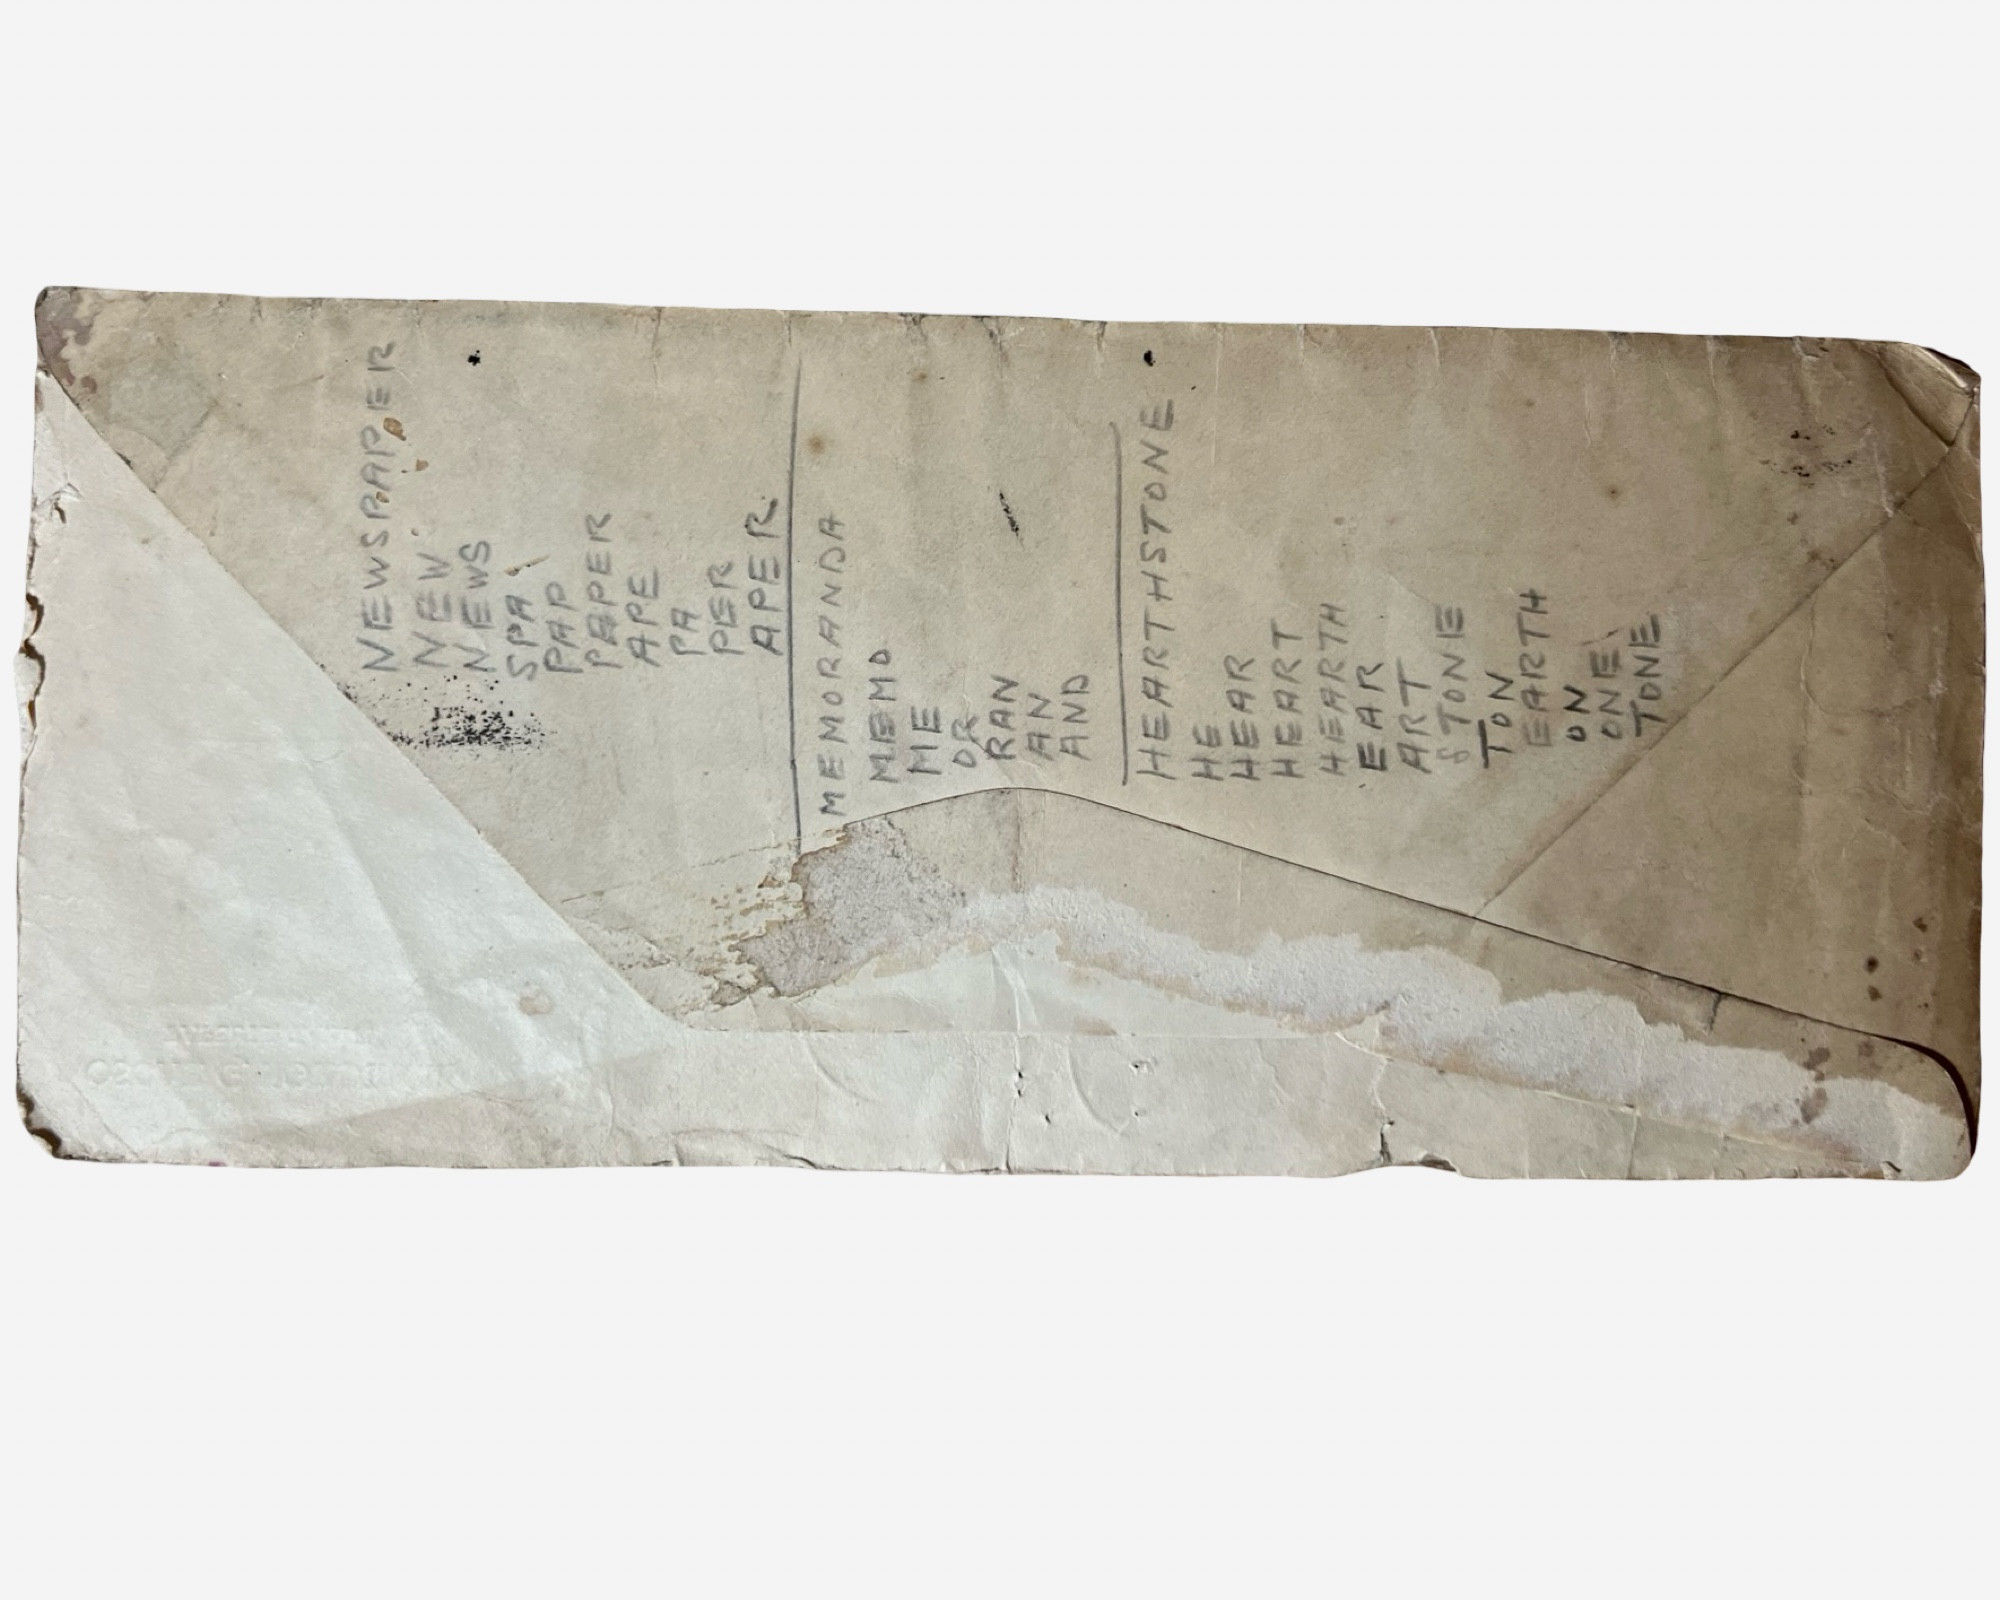 NEWSPAPER
NEW
NEWS
SPA
PAP
PAPER
APE
PA
PER
APER
MEMORANDA
MEMO
ME
OR
RAN
AN
AND
HEARTHSTONE
HE
HEAR
HEART
HEARTH
EAR
ART
STONE
TON
EARTH
ON
ONE
TONE